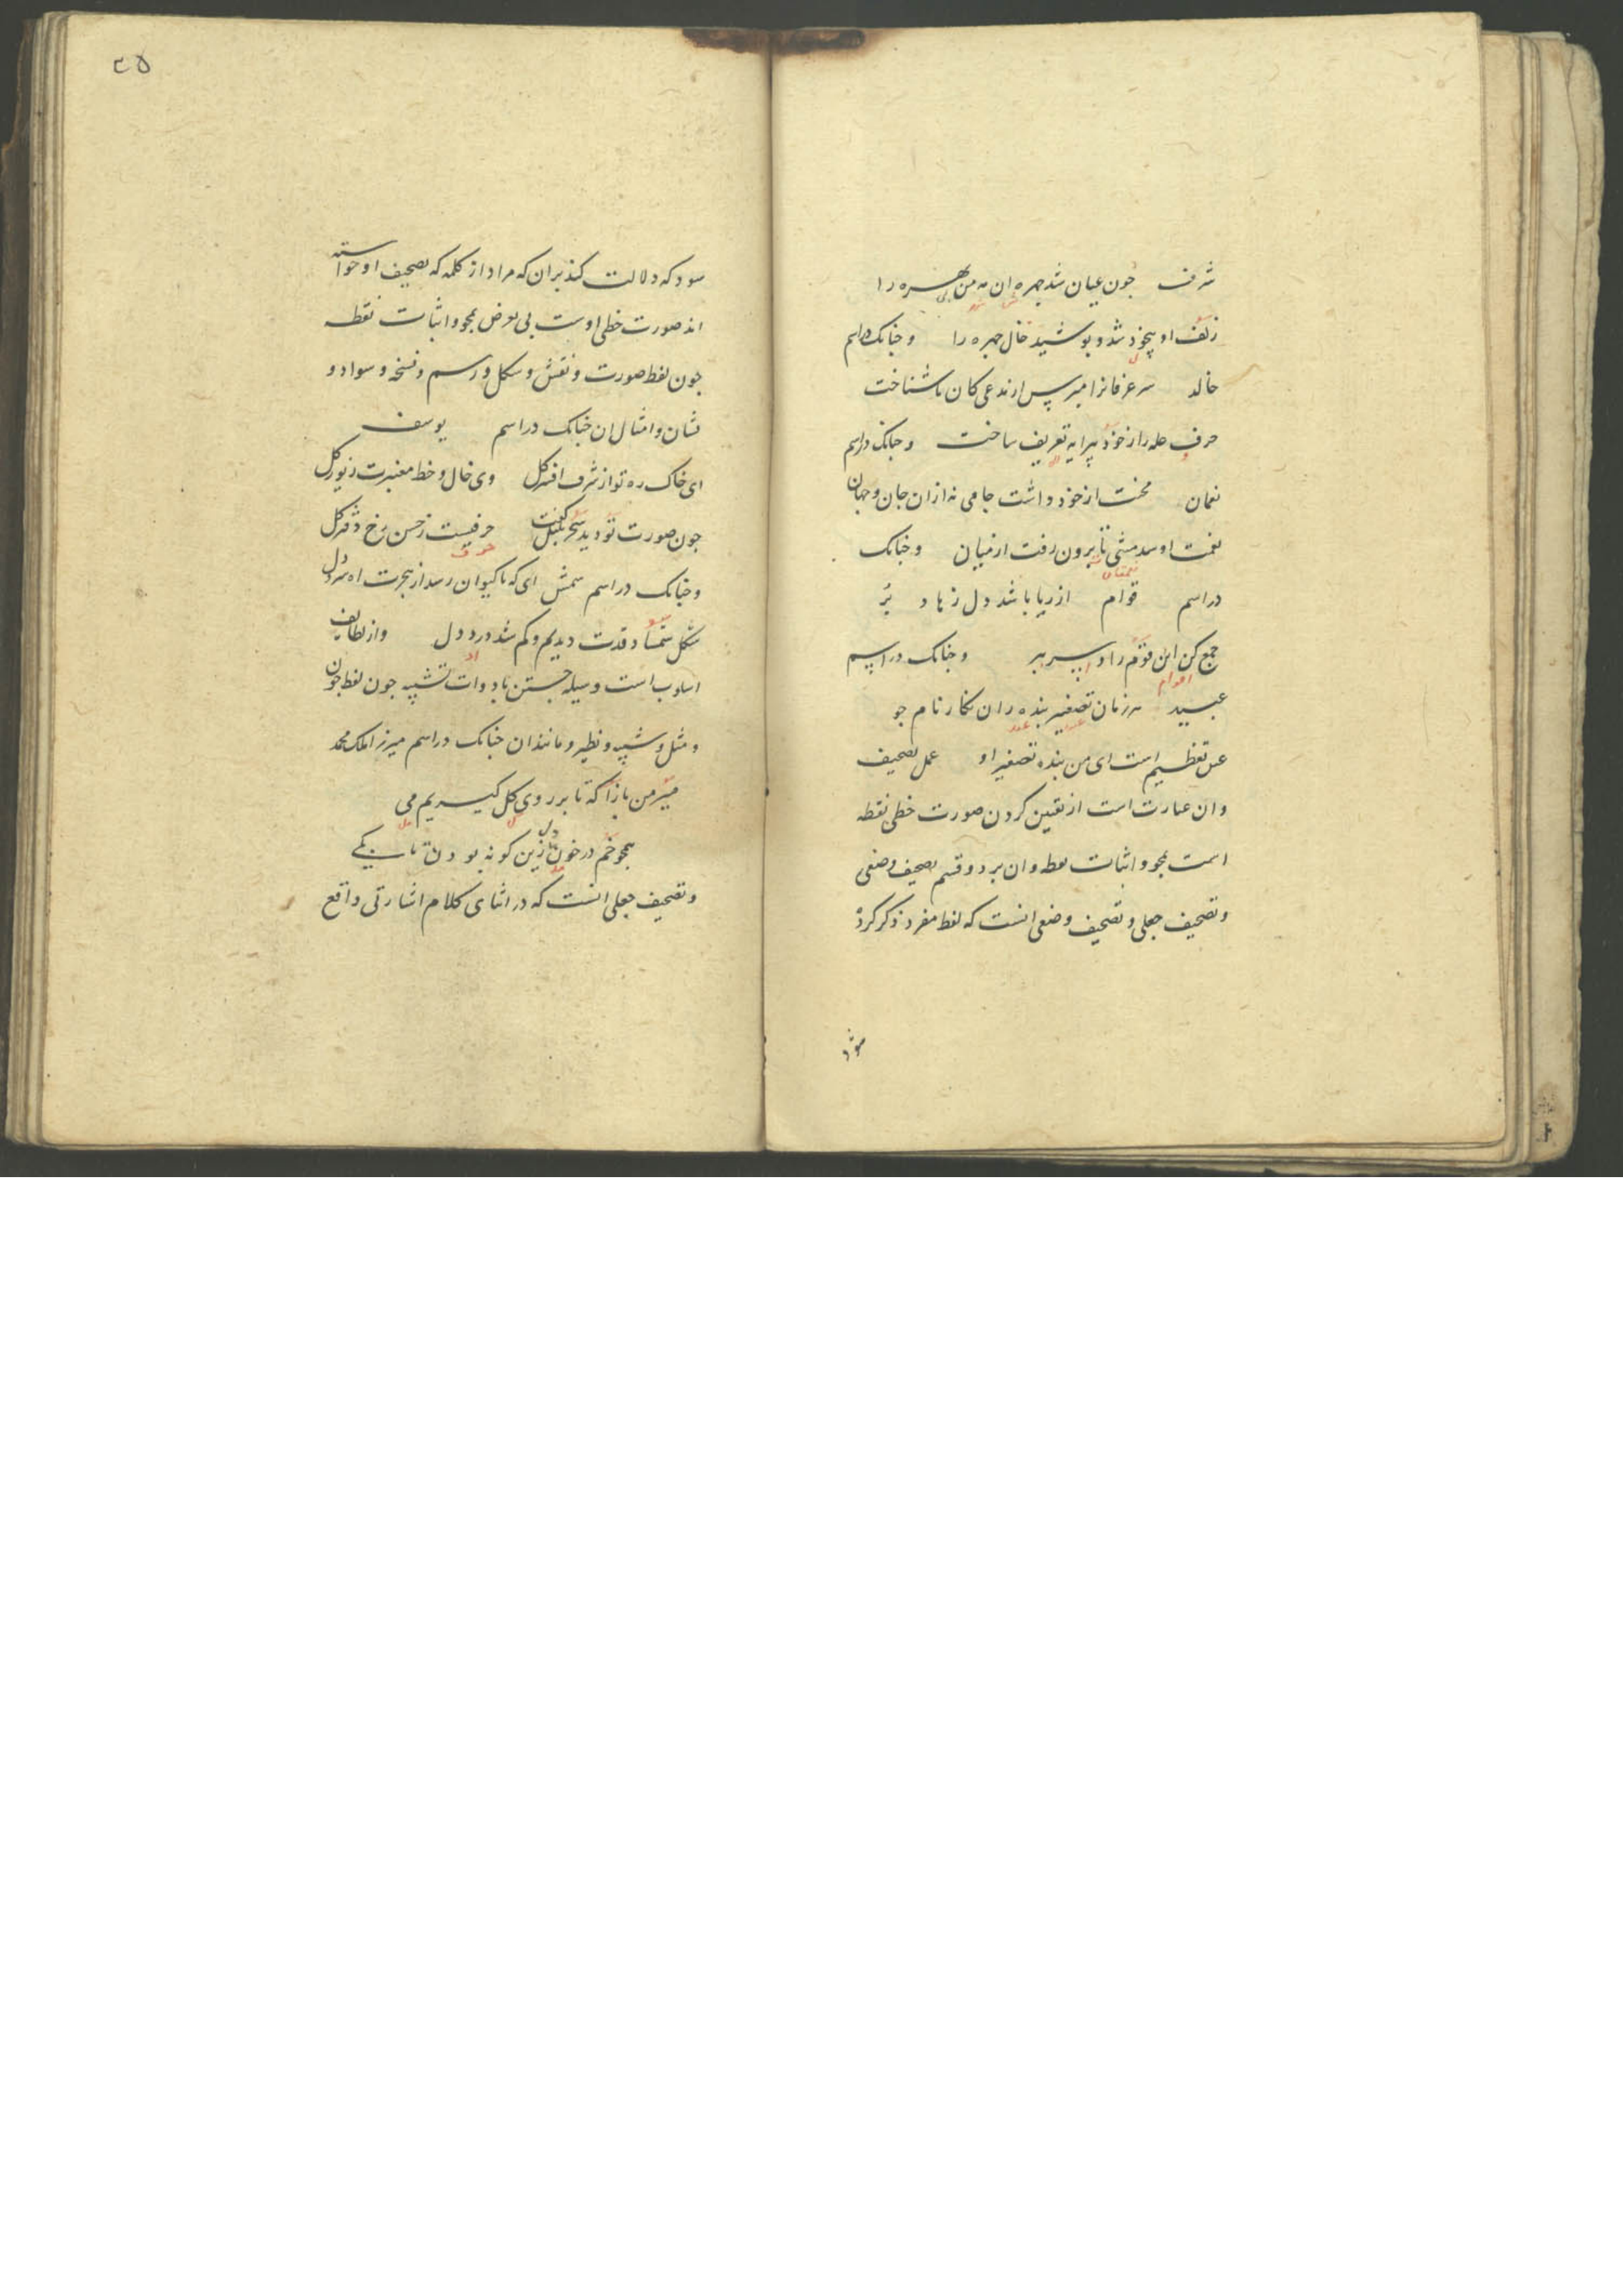 شرف چون عیان شد چهره ان مه من بهره را
زلف او بیخود شد و پوشید خال چهره را و چنانک در اسم
خالد سر عرفانرا مپرس از مدعی کان ناشناخت
حرف عله را ز خود پیرایه تعریف ساخت و چنانک در اسم
نعمان محنت از خود داشت جامی نه از ان جان و جهان
نعمت او شد مثنی تا برون رفت از میان و چنانک
در اسم قوام از ریا باشد دل زهاد پر
جمع کن این قوم را و سر ببر و چنانک در اسم
عبید هر زمان تصغیر بنده ران نکار نام جو
عین تعظیم است ای من بنده تصغیر او عمل تصحیف
وان عبارت است از تعیین کردن صورت خطی نقطه
است بمحو و اثبات نقطه وان بر دو قسم تصحیف وضعی
و تصحیف جعلی و تصحیف وضعی انست که لفظ مفرد ذکر کرد
شود
۲۵
شود که دلالت کند بران که مراد از کلمه که تصحیف او خواسته
اند صورت خطی اوست بی تعرض بمحو و اثبات نقطه
چون لفظ صورت و نقش و شکل و رسم و نسخه و سواد و
نشان و امثال ان چنانک در اسم یوسف
ای خاک ره تو از شرف افسر کل وی خال و خط معنبرت زیور کل
چون صورت تو دید سحر بلبل گفت حرفیست ز حسن رخ دفتر کل
و چنانک در اسم شمس ای که تا کیوان رسد از هجرت اه سرد دل
شکل شمشاد قدت دیدیم و کم شد درد دل و از لطایف
اسلوب است وسیله جستن بادوات تشبیه چون لفظ چون
و مثل و شبیه و نظیر و مانند ان چنانک در اسم میرزا ملک محمد
میر من بازا که تا بر روی کل کیریم می
همچو خم در خون دل زین کونه بودن تا بکی
و تصحیف جعلی انست که در اثنای کلام اشارتی واقع